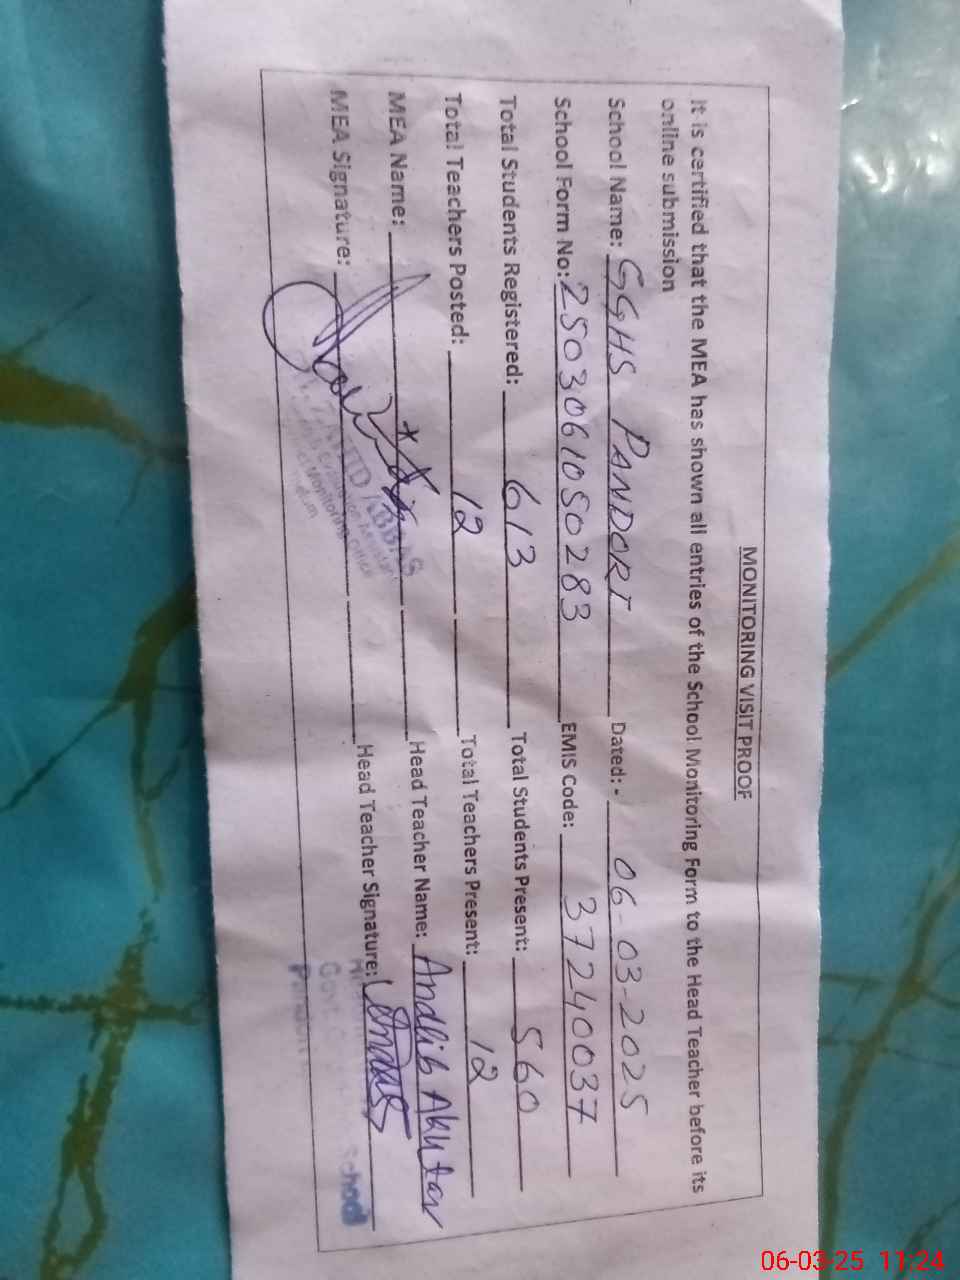 MONITORING VISIT PROOF
It is certified that the MEA has shown all entries of the School Monitoring Form to the Head Teacher before its
online submission
School Name: GGHS PANDORI Dated:- 06-03-2025
School Form No: 2503061050283 EMIS Code: 37240037
Total Students Registered: 613 Total Students Present: 560
Total Teachers Posted: 12 Total Teachers Present: 12
MEA Name: Head Teacher Name: Andlib Akhtar
MEA Signature: Head Teacher Signature:
ABBAS
Monitoring
School
06-03-25 11:24